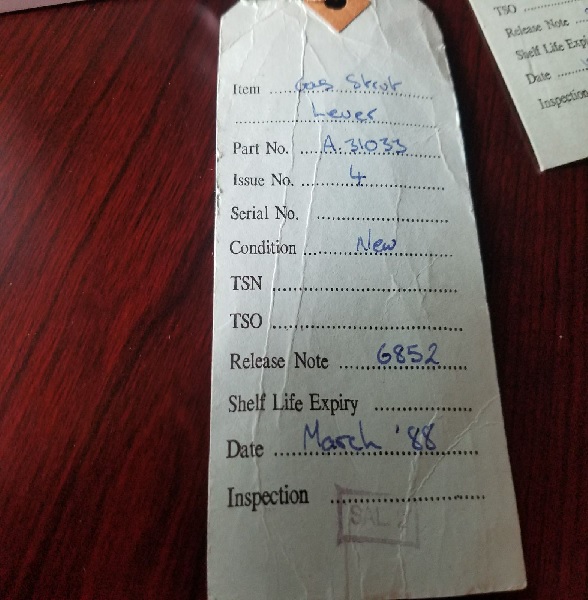 Item Gas Strut
Lever
Part No. A.31033
Issue No. 4
Serial No.
Condition New
TSN
TSO
Release Note 6852
Shelf Life Expiry
Date March '88
Inspection
SAL
TSO
Release Note
Shelf Life Expi
Date
Inspection